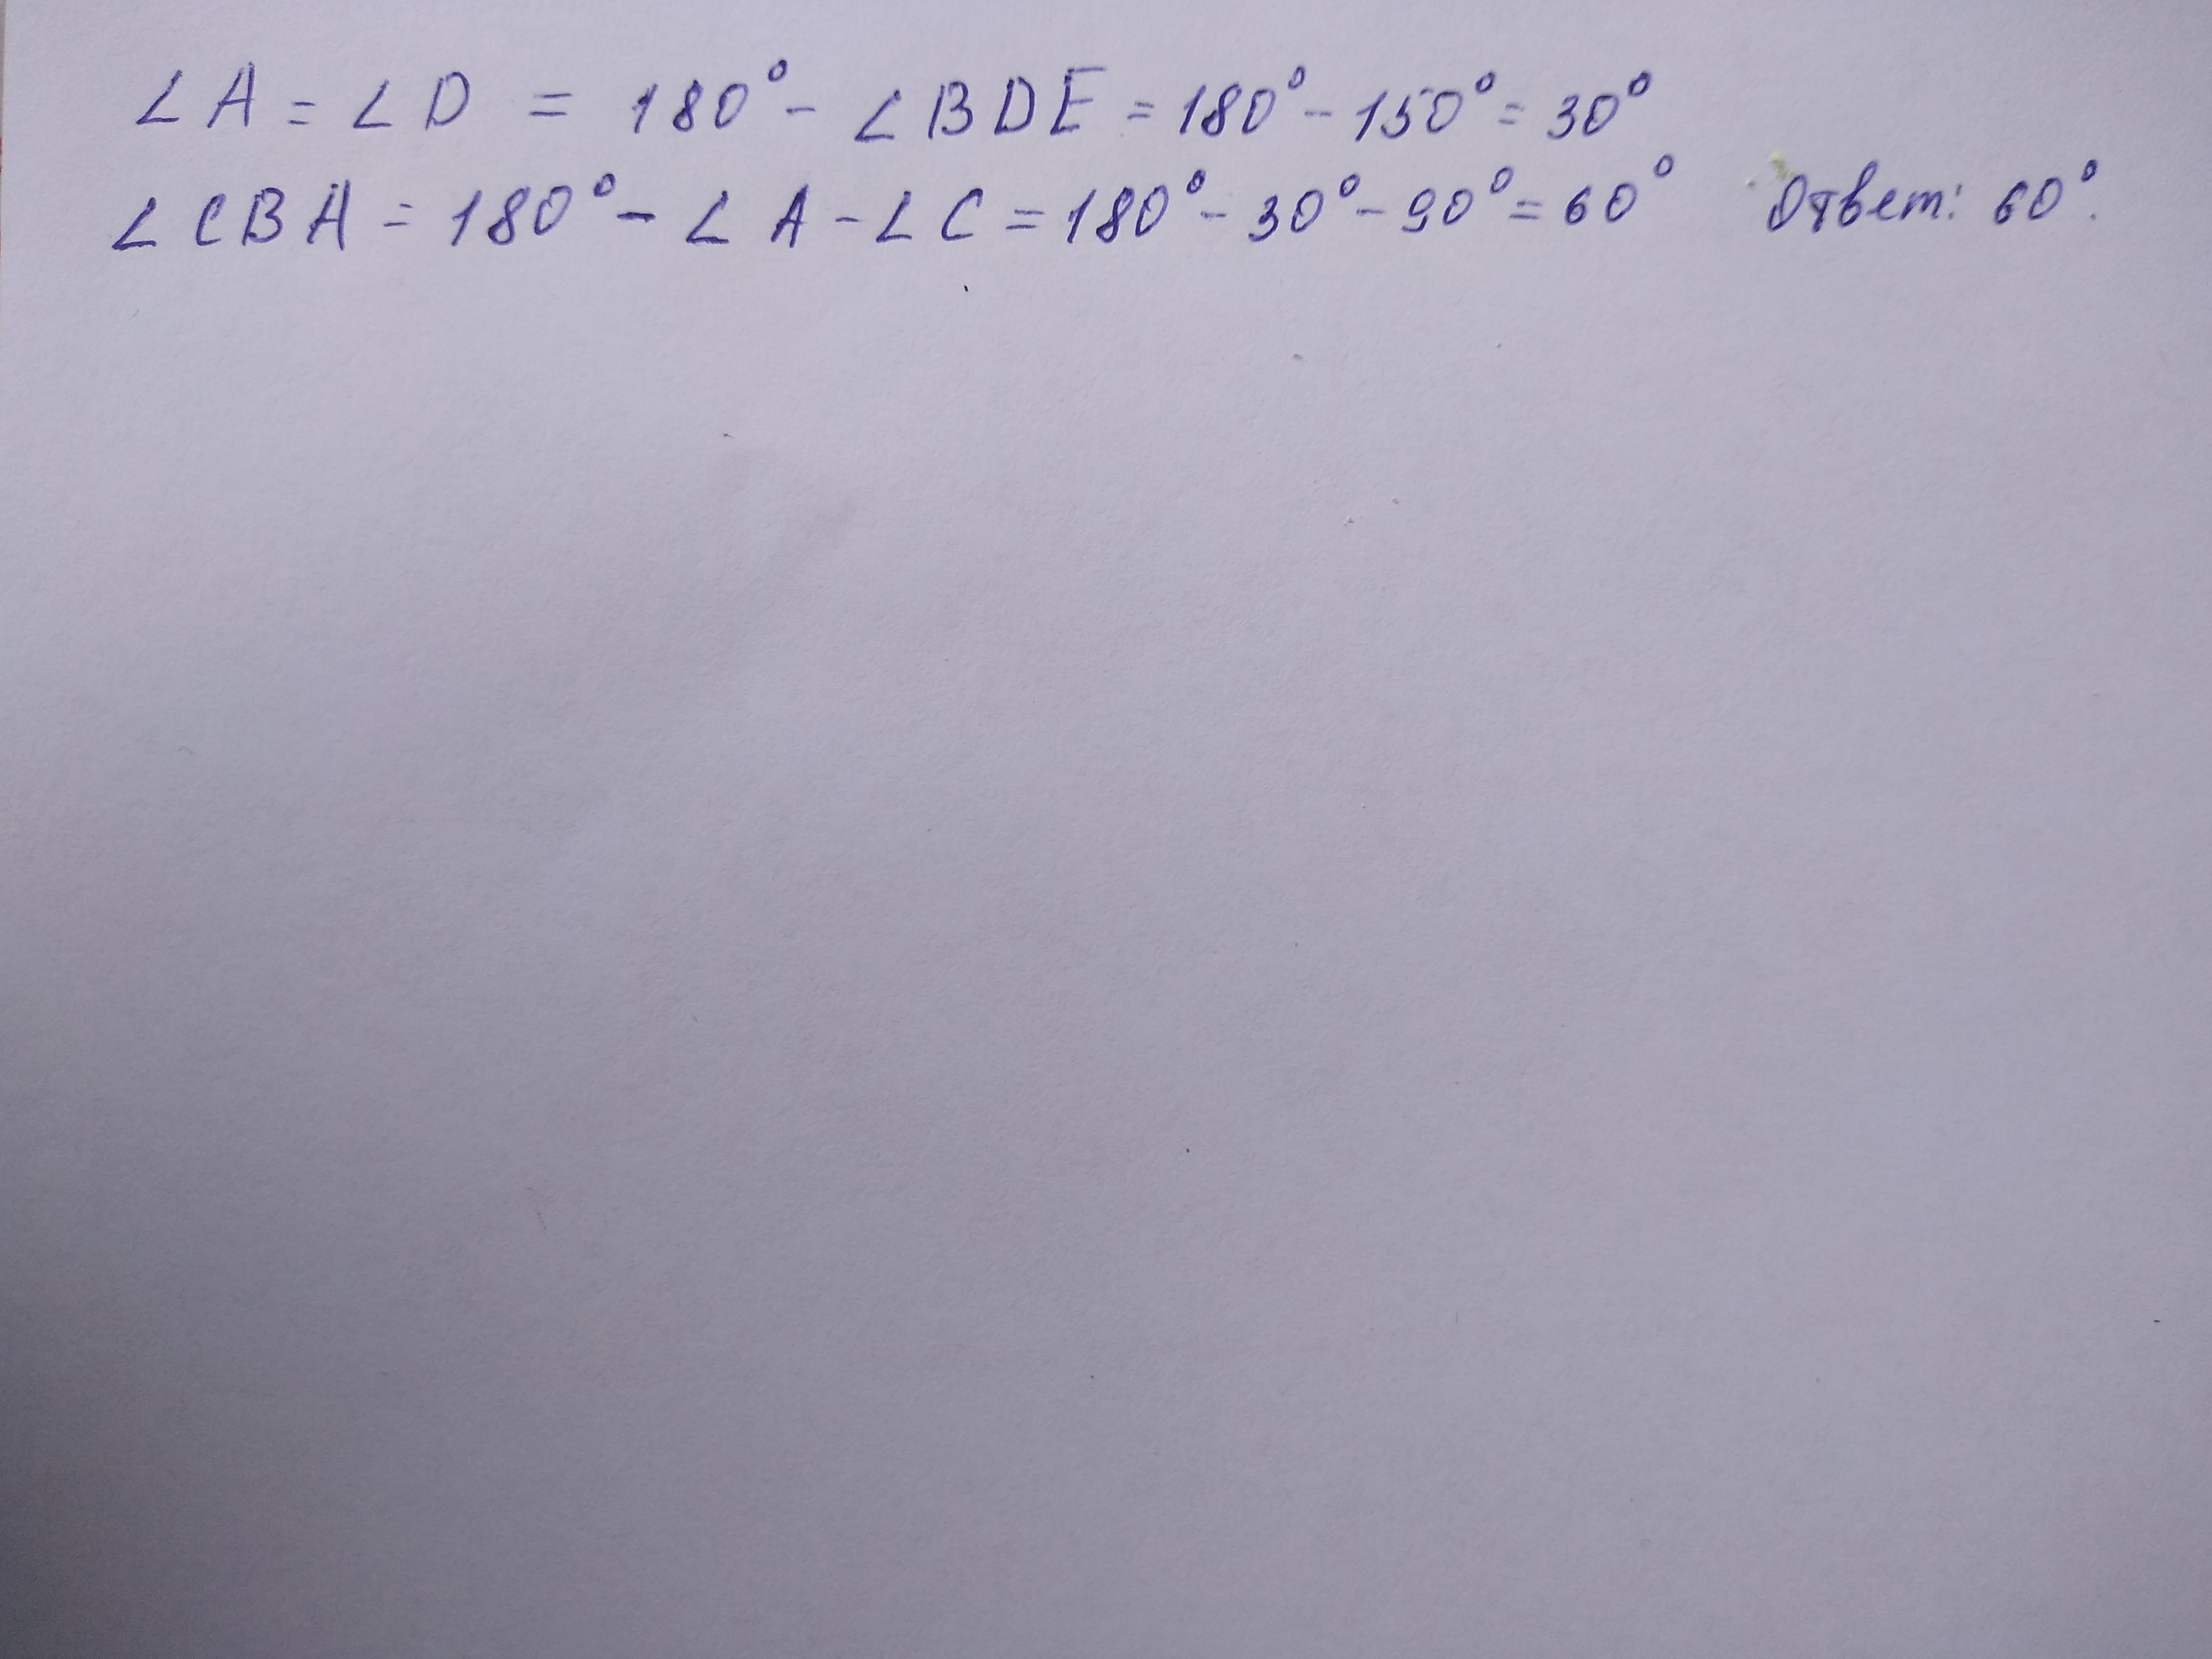 ∠A = ∠D = 180° - ∠BDE = 180° - 150° = 30°
∠CBA = 180° - ∠A - ∠C = 180° - 30° - 90° = 60° Ответ: 60°.